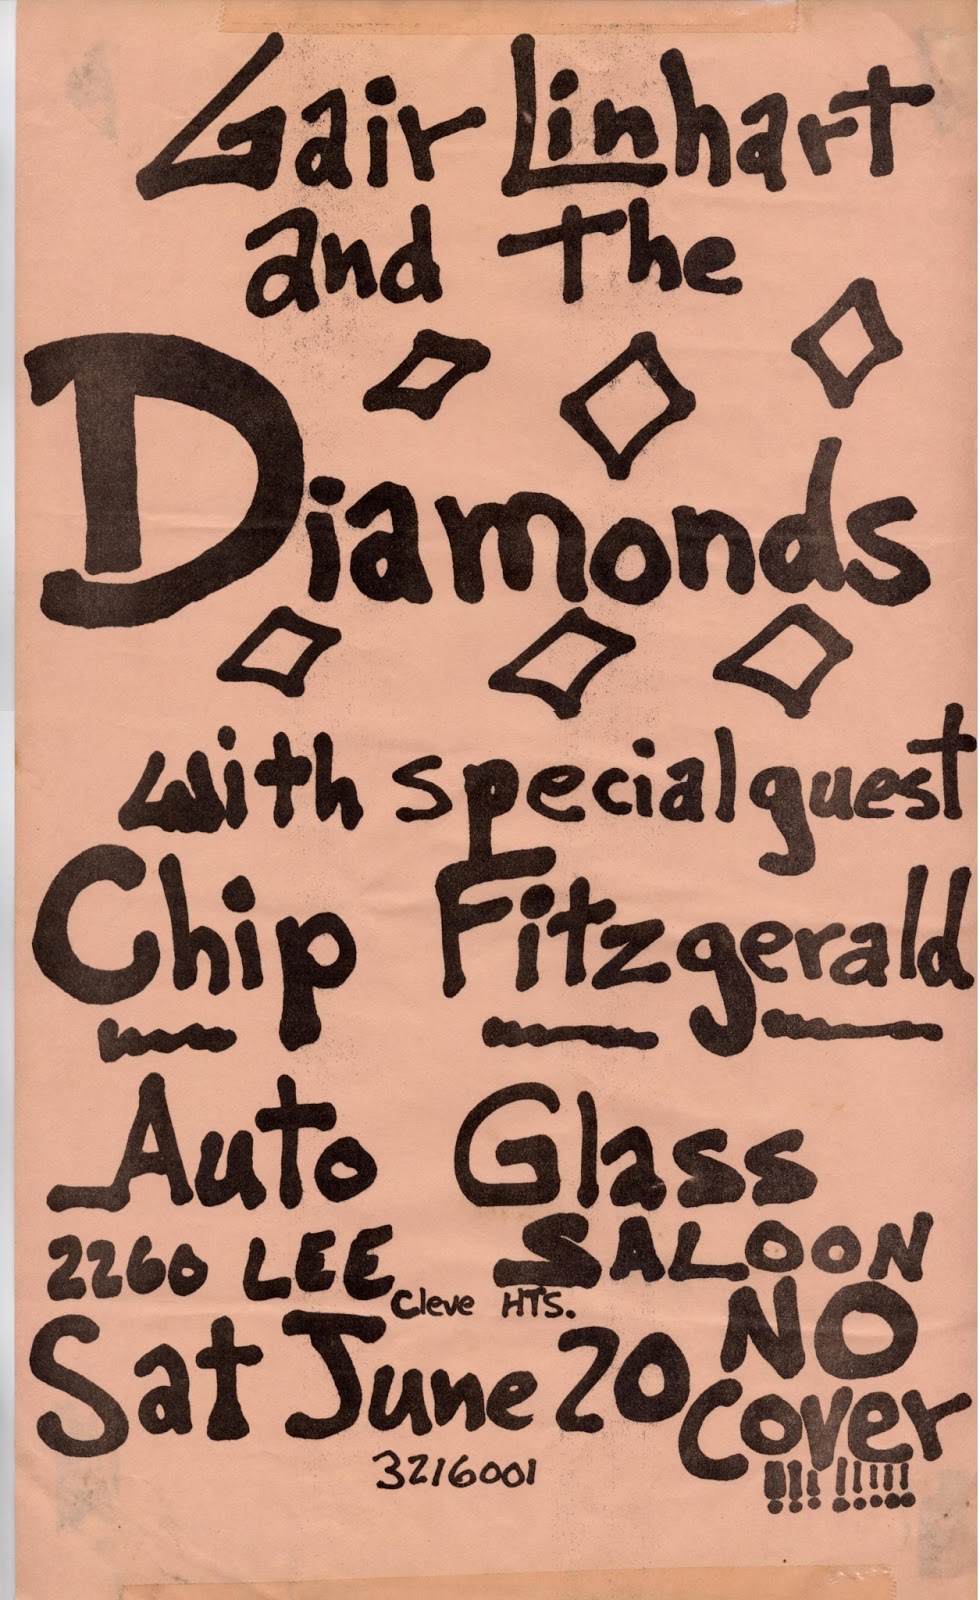 Gair Linhart
and The
Diamonds
with special guest
Chip Fitzgerald
Auto Glass
SALOON
2260 LEE
Cleve HTS.
Sat June 20
NO
Cover
!!! !!!!!
3216001